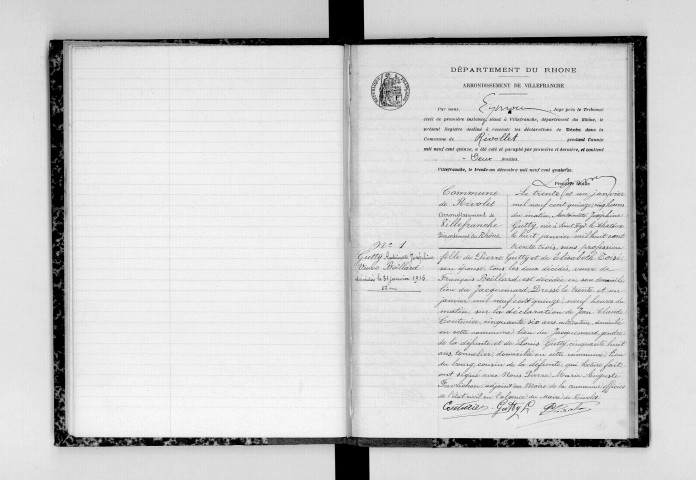 DÉPARTEMENT DU RHONE
ARRONDISSEMENT DE VILLEFRANCHE
Par nous, Juge près le Tribunal
civil de première instance séant à Villefranche, département du Rhône, le
présent Registre destiné à recevoir les déclarations de Décès dans la
Commune de Rivollet pendant l'année
mil neuf cent quinze, a été coté et paraphé par première et dernière, et contient
Deux feuilles.
Villefranche, le trente-un décembre mil neuf cent quatorze.
Première feuille
Commune
de Rivolet
arrondissement de
Villefranche
Département du Rhône
N° 1
Gutty Antoinette Joséphine
Veuve Béillard
décédée le 31 janvier 1915
82 ans
Le trente et un janvier
mil neuf cent quinze, heures
du matin, Antoinette Joséphine
Gutty, née à
le huit janvier mil huit cent
trente trois, sans profession
fille de Pierre Gutty et de Elisabeth
son épouse, tous les deux décédés, veuve de
François Béillard est décédée en son domicile
lieu du Jacquemard. Dressé le trente et un
janvier mil neuf cent quinze, neuf heures du
matin, sur la déclaration de Jean Claude
Couturier, cinquante six ans, cultivateur, domicilié
en cette commune, lieu du Jacquemard, gendre
de la défunte et de Louis Gutty, cinquante huit
ans, tonnelier, domicilié en cette commune, lieu
du bourg, cousin de la défunte, qui lecture faite
ont signé avec Nous Pierre Marie Auguste
adjoint au Maire de la commune, officier
de l'état civil en l'absence du Maire de Rivolet
Couturier Gutty L